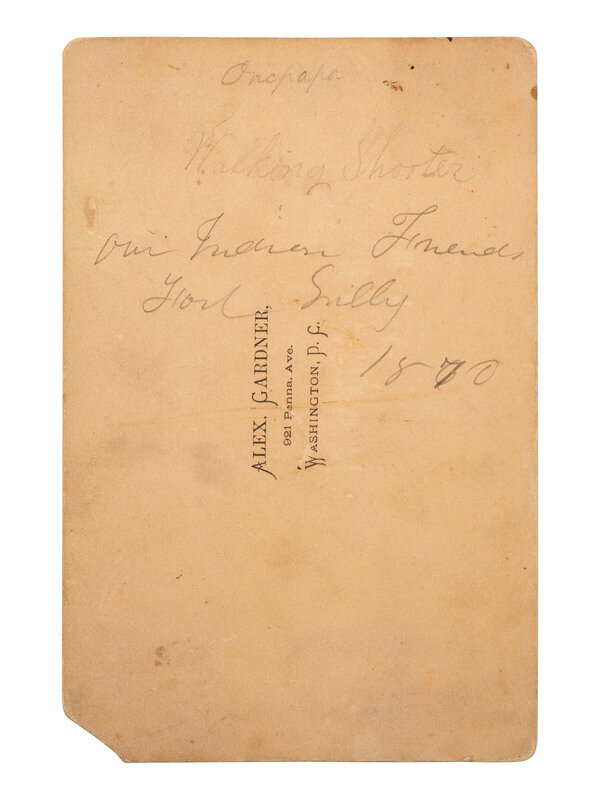 Oncpapa
Walking Shooter
our Indian Friends
Fort Sully
1870
ALEX. GARDNER,
921 Penna. Ave.
WASHINGTON, D. C.